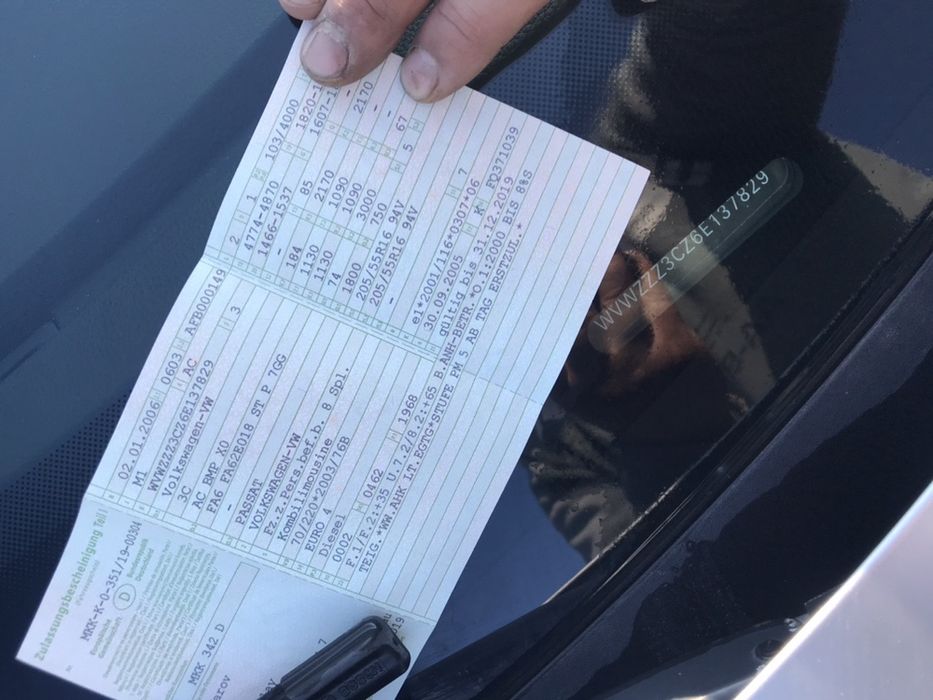 Zulassungsbescheinigung Teil I
MKK-K-0-351/19-00304
Europäische
Gemeinschaft
D
Bundesrepublik
Deutschland
MKK 342 D
02.01.2006 0603 AFB000149
M1 AC
WVWZZZ3CZ6E137829 3
Volkswagen-VW
3C
AC BMP X0
FA6 FA62E018 ST P 7GG
-
PASSAT
VOLKSWAGEN-VW
Fz.z.Pers.bef.b. 8 Spl.
Kombilimousine
70/220*2003/76B
EURO 4
Diesel
0002 0462 1968
F.1/F.2:+35 U.7.2/8.2:+65 B.ANH-BETR.*O.1:2000 BIS 8%S
TEIG.*WW.AHK LT.EGTG*STUFE PM 5 AB TAG ERSTZUL.*
2 1 103/4000
4774-4870 1820-1
1466-1537 1607-1
- 85 -
184 2170 2170
1130 1090 -
1130 1090 -
74 3000 5 67
1800 750
205/55R16 94V
205/55R16 94V
-
e1*2001/116*0307*06
30.09.2005 K 7
gültig bis 31.12.2019
PQ371039
WVWZZZ3CZ6E137829